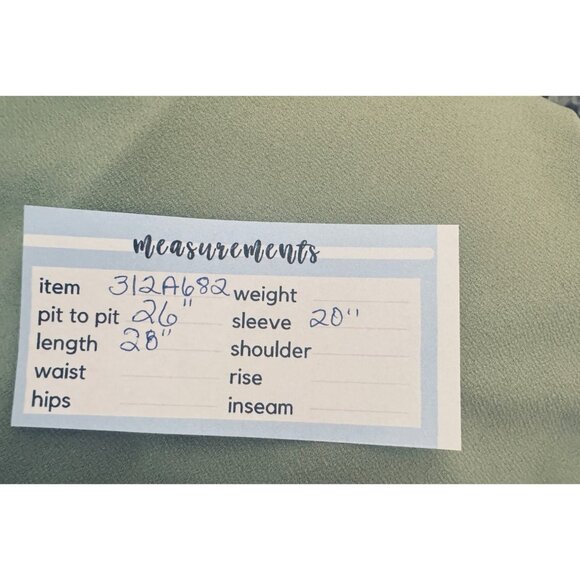 measurements
item 312A682 weight
pit to pit 26" sleeve 20"
length 28" shoulder
waist rise
hips inseam